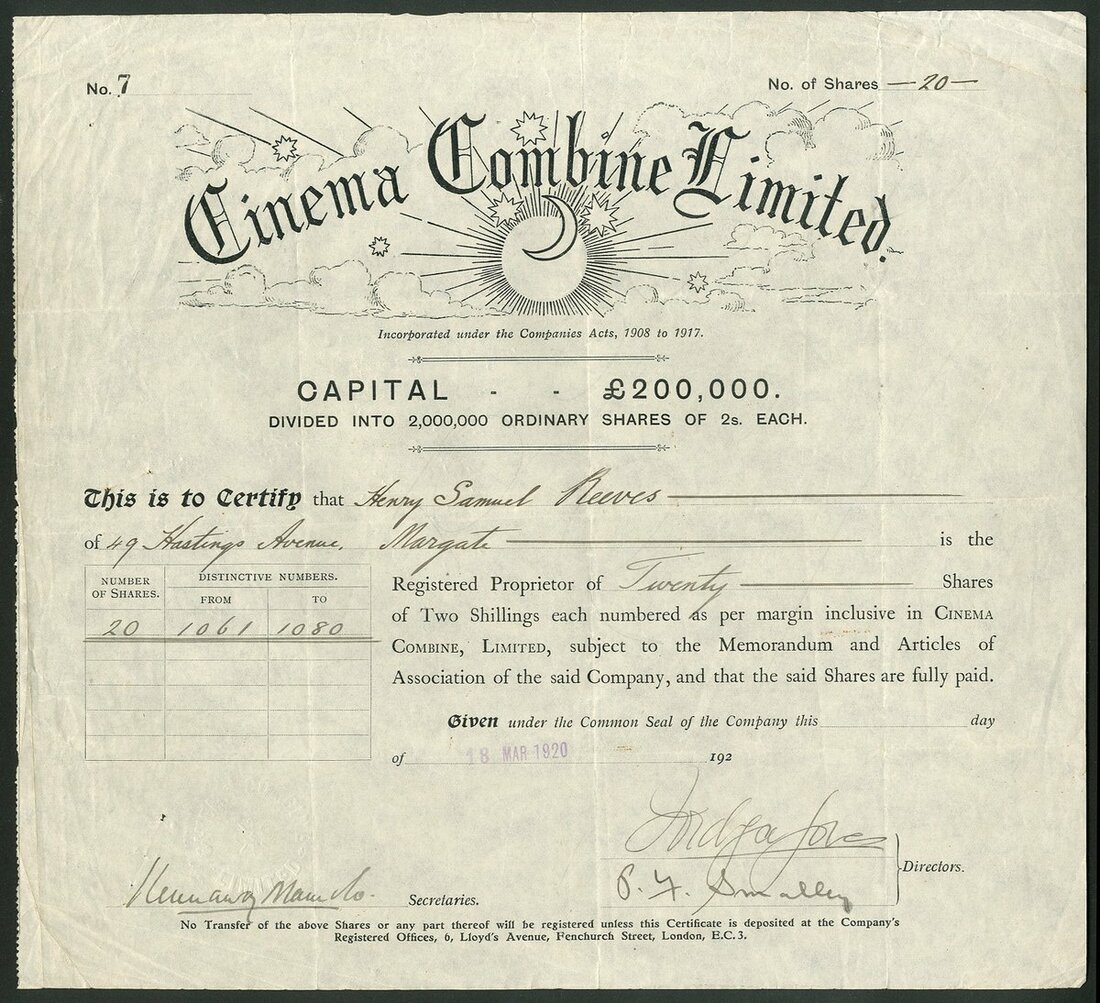 No. 7
No. of Shares — 20 —
Cinema Combine Limited.
Incorporated under the Companies Acts, 1908 to 1917.
CAPITAL - - £200,000.
DIVIDED INTO 2,000,000 ORDINARY SHARES OF 2s. EACH.
This is to Certify that Henry Samuel Reeves
of 49 Hastings Avenue, Margate is the
NUMBER OF SHARES.
DISTINCTIVE NUMBERS.
FROM TO
20 1061 1080
Registered Proprietor of Twenty Shares
of Two Shillings each numbered as per margin inclusive in CINEMA
COMBINE, LIMITED, subject to the Memorandum and Articles of
Association of the said Company, and that the said Shares are fully paid.
Given under the Common Seal of the Company this day
of 18 MAR 1920 192
Directors.
P. Y. Smalley
Secretaries.
No Transfer of the above Shares or any part thereof will be registered unless this Certificate is deposited at the Company's
Registered Offices, 6, Lloyd's Avenue, Fenchurch Street, London, E.C. 3.